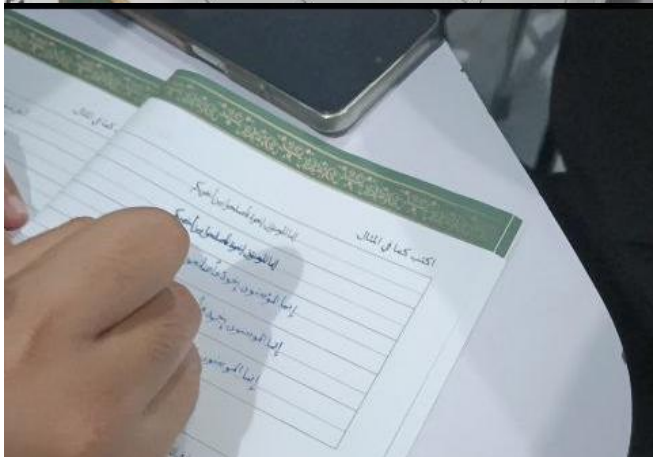 اكتب كما في المثال
إنما المؤمنون إخوة فأصلحوا بين أخويكم
إنما المؤمنون إخوة فأصلحوا بين أخويكم
إنما المؤمنون إخوة
إنما المؤمنون إخوة
إنما المؤمنون
كما في المثال